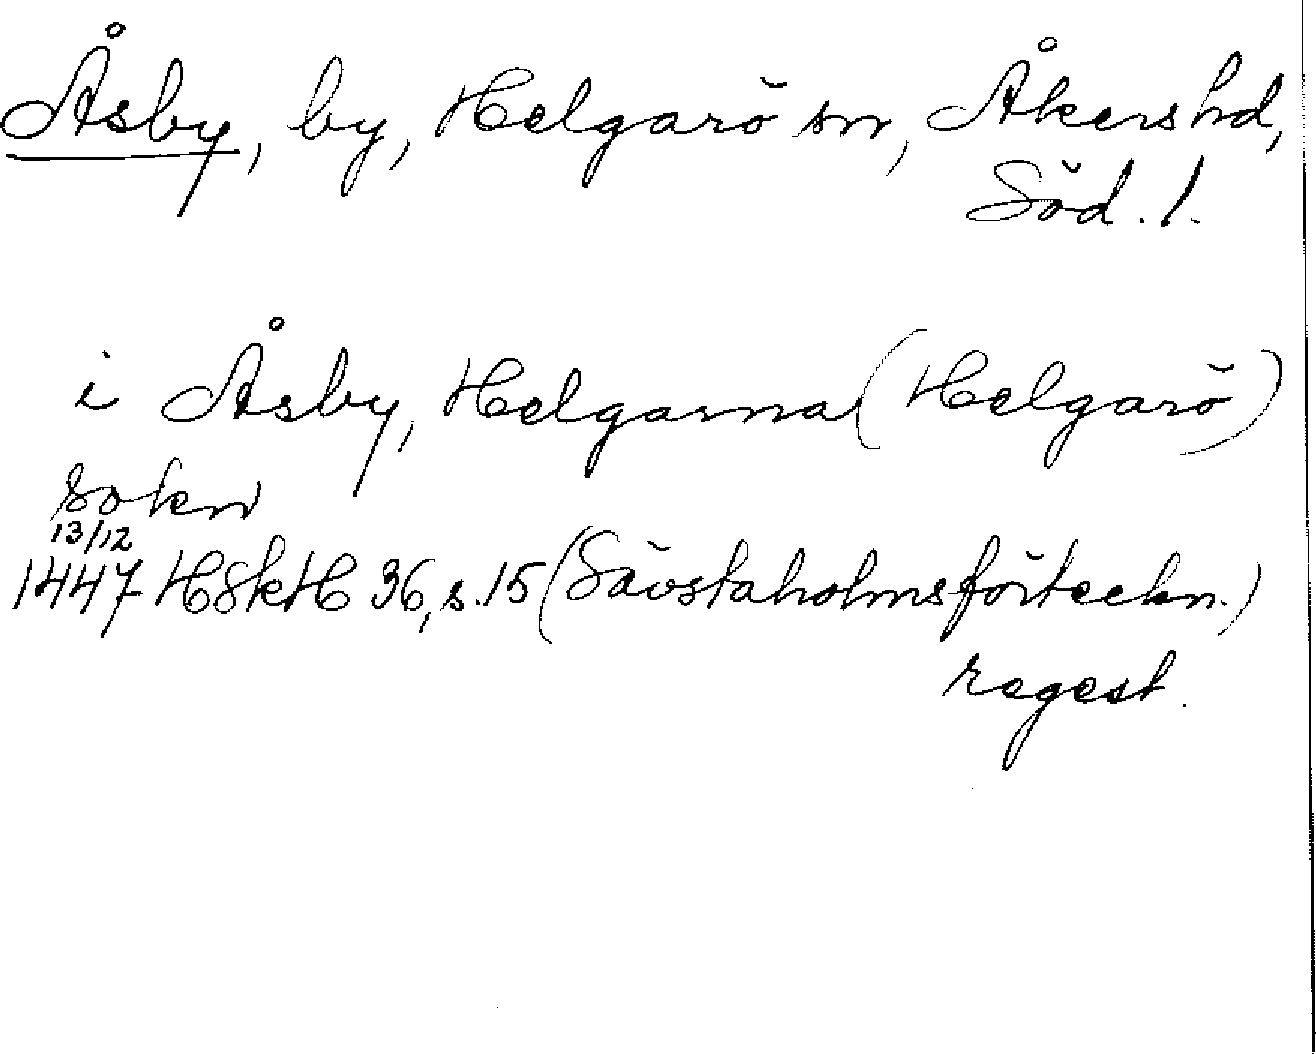 Åsby, by, Helgarö sn, Åkers hd,
Söd. l.
i Åsby, Helgarna (Helgarö)
sokn
13/12
1447 HSkH 36, s. 15 (Sävstaholmsförteckn.)
regest.